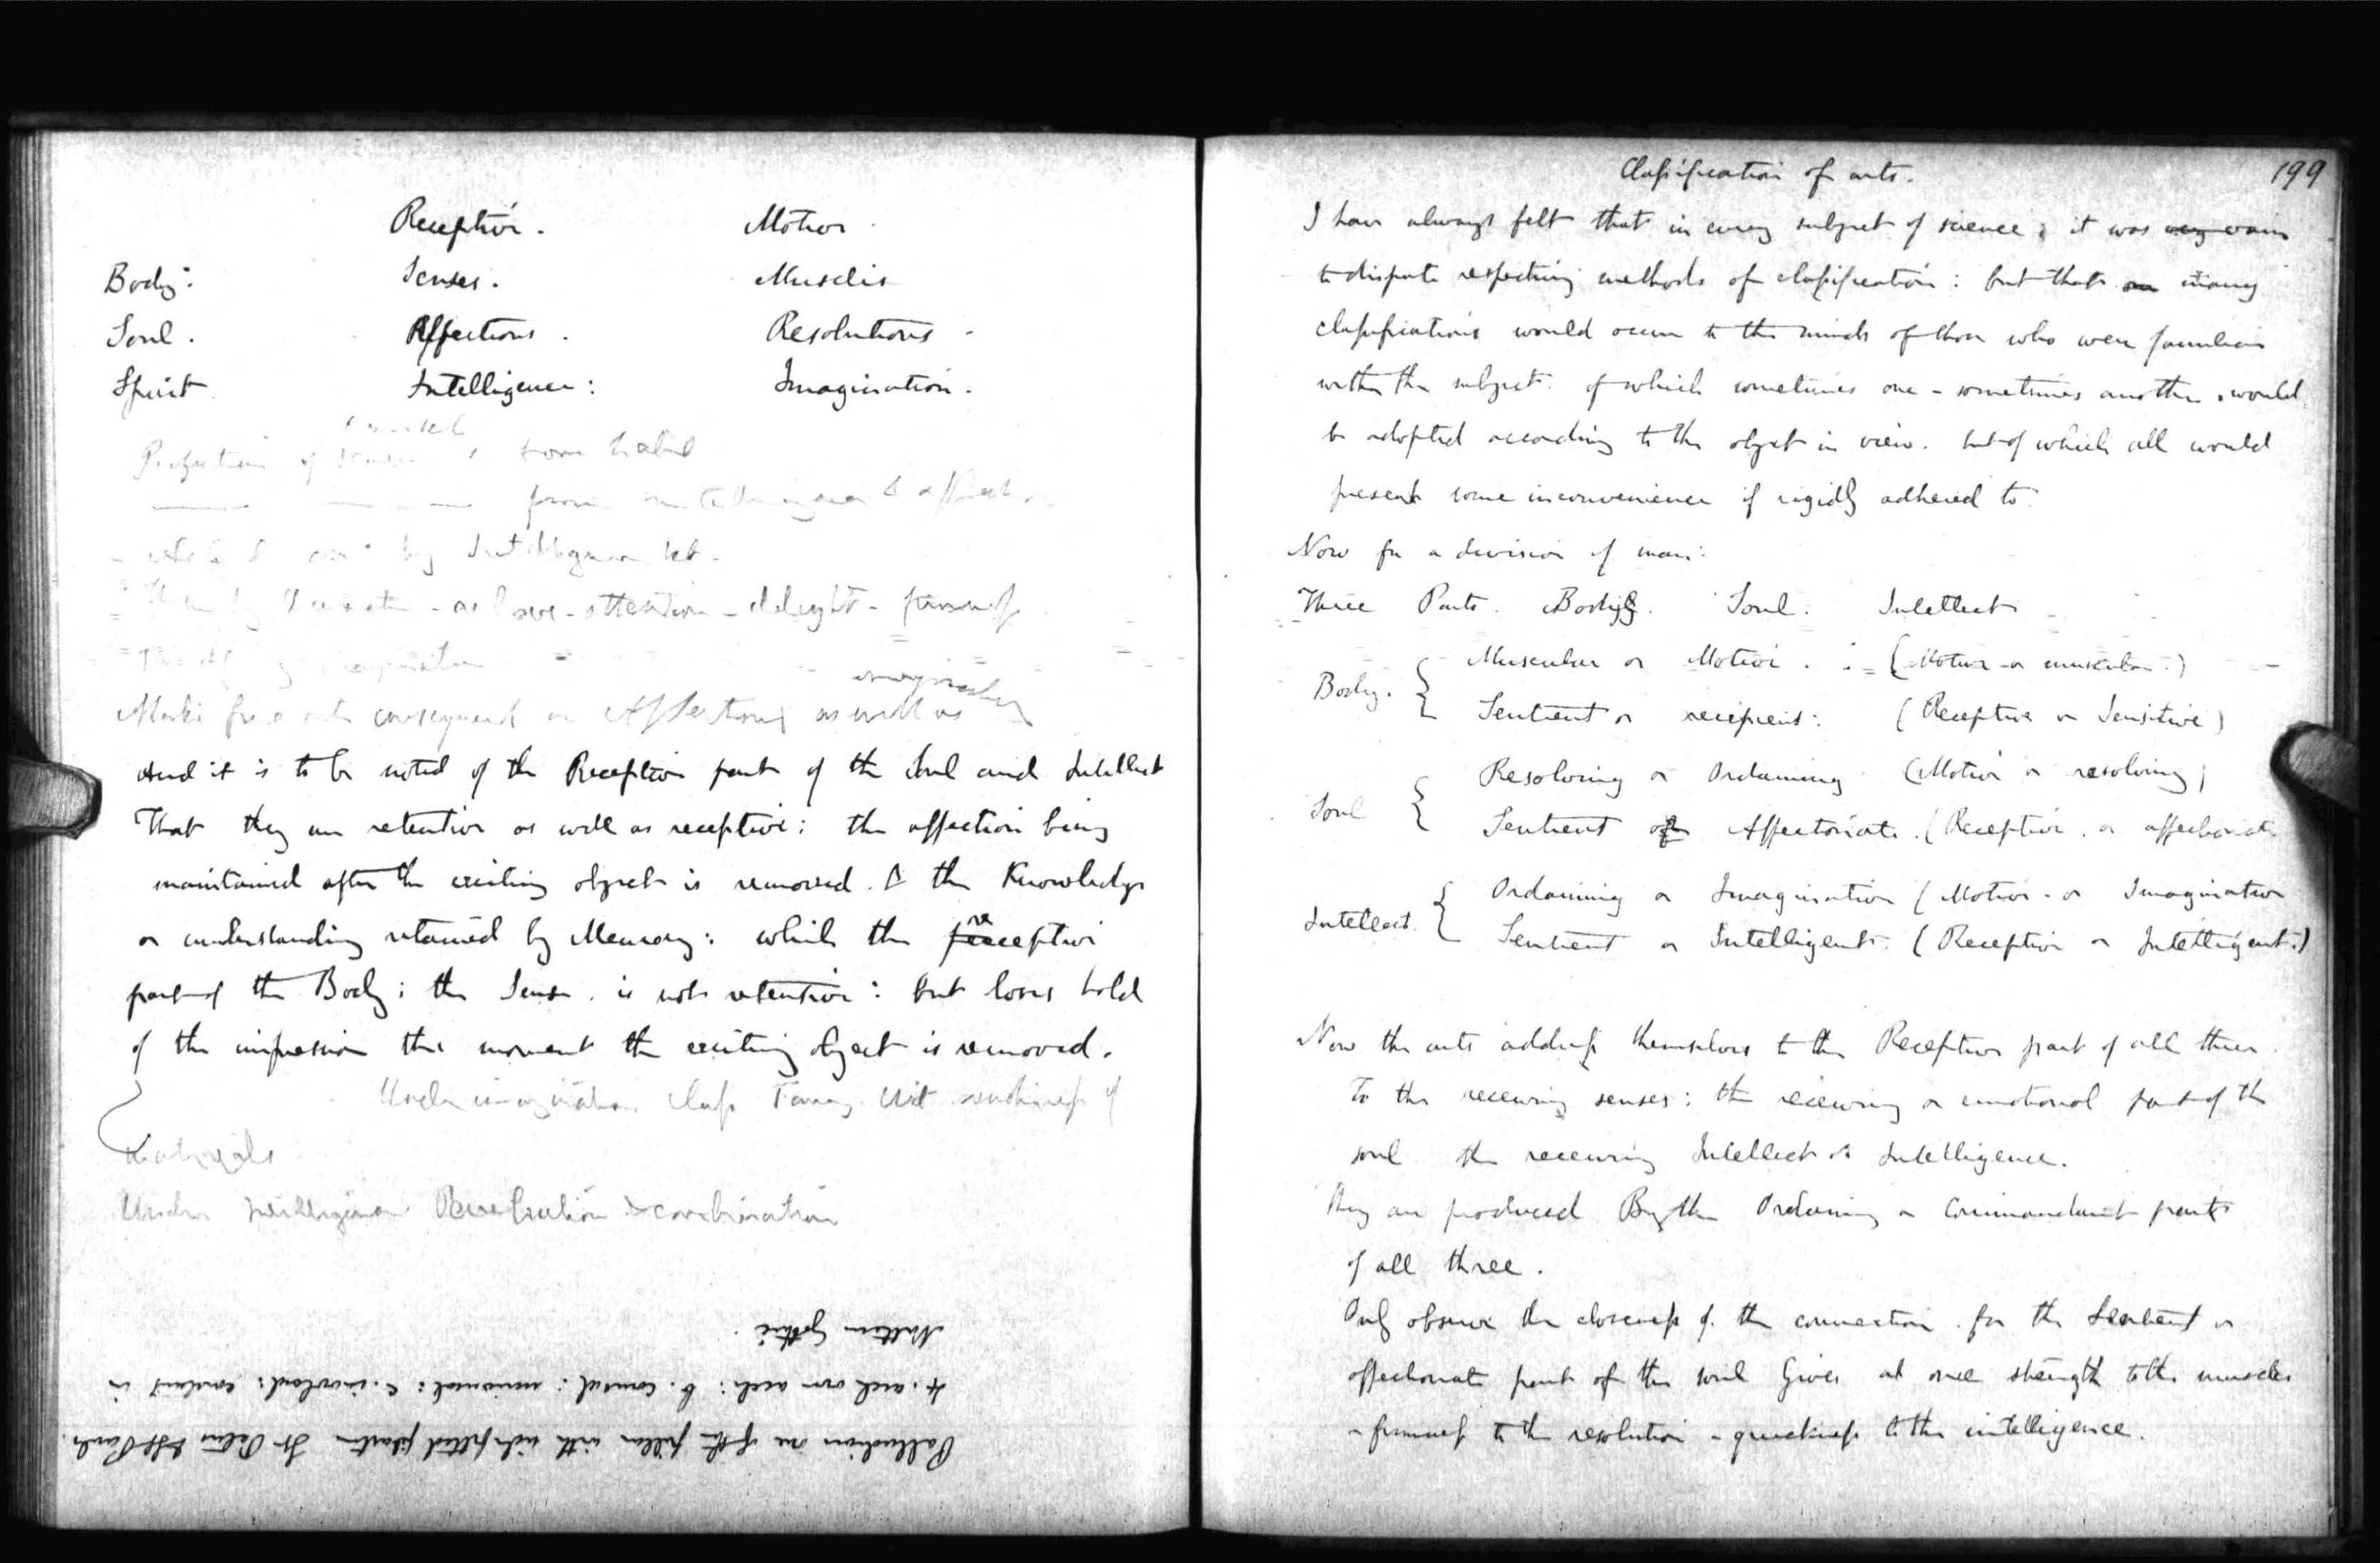 Receptive. Motive
Body: Senses. Muscles
Soul. Affections. Resolutions -
Spirit Intelligence: Imagination.
of from habit
from intelligence & affection
by Intelligence let.
by - as love - attention - delight - pursuit
imaginative
Marks consequent on Affections as well as
And it is to be noted of the Receptive part of the Soul and Intellect
That they are retentive as well as receptive: the affection being
maintained after the exciting object is removed. & the Knowledge
or understanding retained by Memory: while the receptive
part of the Body: the Sense. is not retentive: but loses hold
of the impression the moment the exciting object is removed.
Under imagination class Fancy Wit readiness of
materials
Under Intelligence Penetration & combination
Palladian use of the pillar with side fitted St Peters & St Pauls.
4. arch over arch: b. : universal: c. : constant in
Northern Gothic
199
Classification of arts.
I have always felt that in every subject of science; it was very vain
to dispute respecting methods of classification: but that many
classifications would occur to the minds of those who were familiar
with the subject. of which sometimes one - sometimes another. would
be adopted according to the object in view. but of which all would
present some inconvenience if rigidly adhered to.
Now for a division of man:
Three Parts. Body. Soul. Intellect
Body. { Muscular or Motive. := (Motive or muscular.)
Sentient or recipient: (Receptive or Sensitive)
Soul { Resolving or Ordaining (Motive or resolving)
Sentient or Affectionate. (Receptive. or affectionate
Intellect. { Ordaining or Imaginative (Motive - or Imaginative
Sentient or Intelligent. (Receptive or Intelligent.)
Now the arts address themselves to the Receptive part of all three.
To the receiving senses: the receiving or emotional part of the
soul the receiving Intellect or Intelligence.
They are produced By the Ordaining or Commandant parts
of all three.
Only observe the closeness of the connection. for the Sentient or
affectionate part of the soul Gives at once strength to the muscles
- firmness to the resolution - quickness to the intelligence.